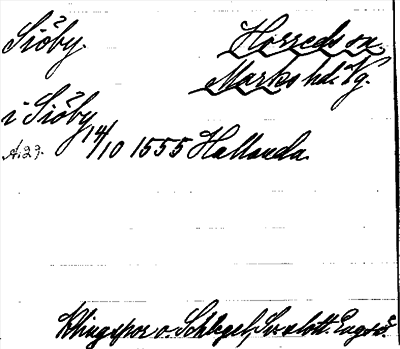 Siöby.
Horreds sn.
Marks hd. Vg.
i Siöby 14/10 1555 Hallanda.
A:29.
Klingspor o. Schlegel, Sv. slott. Engsö.